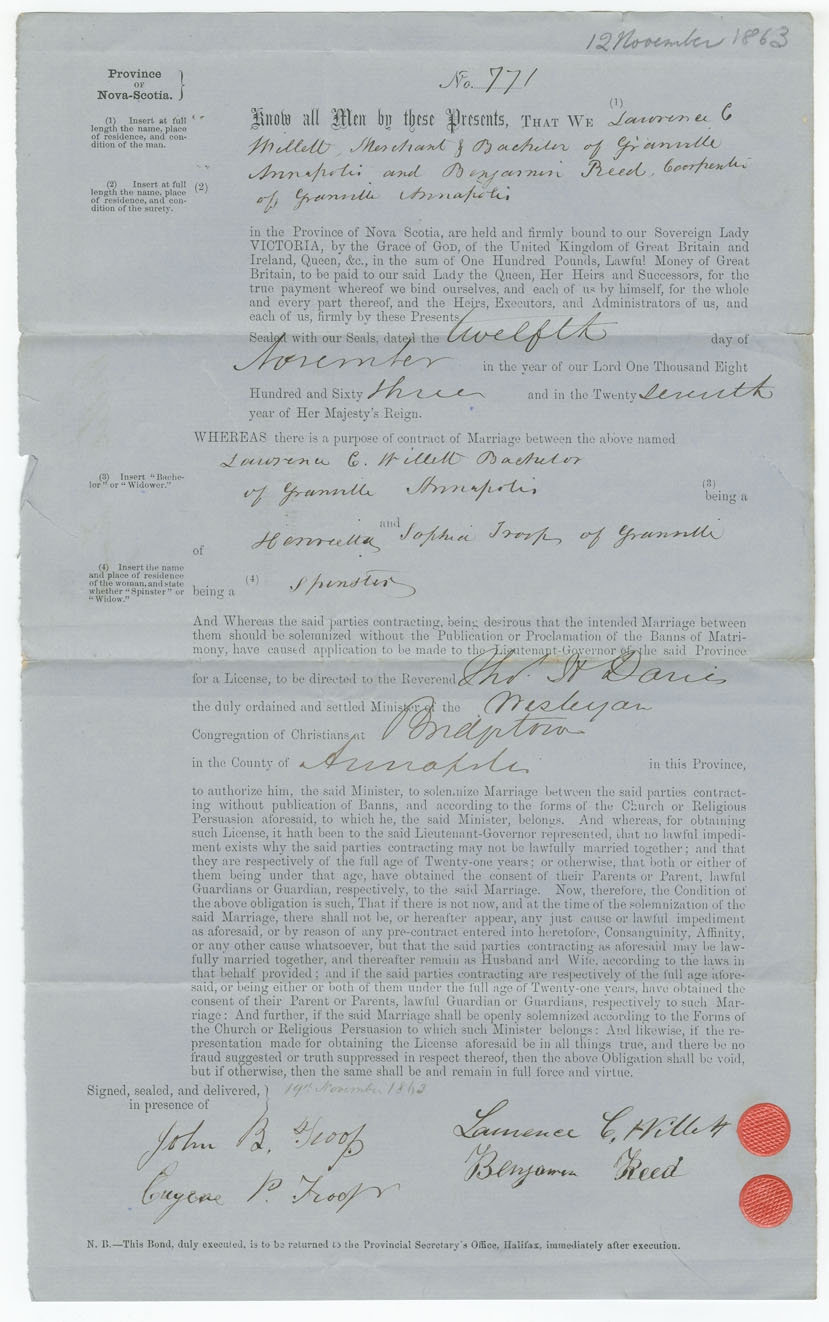 12 November 1863
Province
OF
Nova-Scotia.
No. 771
(1) Insert at full
length the name, place
of residence, and con-
dition of the man.
(1)
Know all Men by these Presents, THAT WE Lawrence C
Willett, Merchant & Bachelor of Granville
Annapolis and Benjamin Reed, Coarpenter
of Granville Annapolis
(2) Insert at full
length the name, place
of residence, and con-
dition of the surety.
(2)
in the Province of Nova Scotia, are held and firmly bound to our Sovereign Lady
VICTORIA, by the Grace of GOD, of the United Kingdom of Great Britain and
Ireland, Queen, &c., in the sum of One Hundred Pounds, Lawful Money of Great
Britain, to be paid to our said Lady the Queen, Her Heirs and Successors, for the
true payment whereof we bind ourselves, and each of us by himself, for the whole
and every part thereof, and the Heirs, Executors, and Administrators of us, and
each of us, firmly by these Presents.
Sealed with our Seals, dated the twelfth day of
November in the year of our Lord One Thousand Eight
Hundred and Sixty three and in the Twenty Seventh
year of Her Majesty's Reign.
WHEREAS there is a purpose of contract of Marriage between the above named
Lawrence C. Willett Bachelor
(3) Insert "Bache-
lor" or "Widower."
of Granville Annapolis (3)
being a
and
of Henrietta Sophia Troop of Granville
(4) Insert the name
and place of residence
of the woman, and state
whether "Spinster" or
"Widow."
being a (4) Spinster
And Whereas the said parties contracting, being desirous that the intended Marriage between
them should be solemnized without the Publication or Proclamation of the Banns of Matri-
mony, have caused application to be made to the Lieutenant-Governor of the said Province
for a License, to be directed to the Reverend Thos. H Davis
the duly ordained and settled Minister of the Wesleyan
Congregation of Christians at Bridgetown
in the County of Annapolis in this Province,
to authorize him, the said Minister, to solemnize Marriage between the said parties contract-
ing without publication of Banns, and according to the forms of the Church or Religious
Persuasion aforesaid, to which he, the said Minister, belongs. And whereas, for obtaining
such License, it hath been to the said Lieutenant-Governor represented, that no lawful impedi-
ment exists why the said parties contracting may not be lawfully married together; and that
they are respectively of the full age of Twenty-one years; or otherwise, that both or either of
them being under that age, have obtained the consent of their Parents or Parent, lawful
Guardians or Guardian, respectively, to the said Marriage. Now, therefore, the Condition of
the above obligation is such, That if there is not now, and at the time of the solemnization of the
said Marriage, there shall not be, or hereafter appear, any just cause or lawful impediment
as aforesaid, or by reason of any pre-contract entered into heretofore, Consanguinity, Affinity,
or any other cause whatsoever, but that the said parties contracting as aforesaid may be law-
fully married together, and thereafter remain as Husband and Wife, according to the laws in
that behalf provided; and if the said parties contracting are respectively of the full age afore-
said, or being either or both of them under the full age of Twenty-one years, have obtained the
consent of their Parent or Parents, lawful Guardian or Guardians, respectively to such Mar-
riage: And further, if the said Marriage shall be openly solemnized according to the Forms of
the Church or Religious Persuasion to which such Minister belongs: And likewise, if the re-
presentation made for obtaining the License aforesaid be in all things true, and there be no
fraud suggested or truth suppressed in respect thereof, then the above Obligation shall be void,
but if otherwise, then the same shall be and remain in full force and virtue.
Signed, sealed, and delivered,
in presence of
19th November 1863
John B. Troop
Eugene P. Troop
Lawrence C. Willett
Benjamin Reed
N. B.—This Bond, duly executed, is to be returned to the Provincial Secretary's Office, Halifax, immediately after execution.